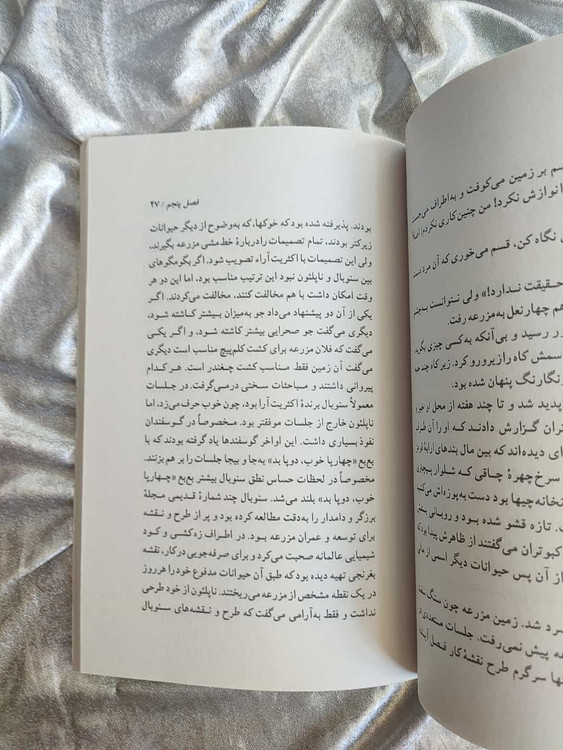 سم بر زمین می‌کوفت و به‌اطراف می‌جست
نوازش نکرد! من چنین کاری نکرده‌ام!
نگاه کن، قسم می‌خوری که آن مرد دست
حقیقت ندارد!» ولی نتوانست به
هم چهارنعل به‌مزرعه رفت.
رسید و بی‌آنکه به‌کسی چیزی بگوید
سمش کاه را زیر و رو کرد. زیر کاه چند
رنگارنگ پنهان شده بود.
پدید شد و تا چند هفته از محل او
گزارش دادند که او را آن طرف
دیده‌اند که بین مال بند‌های ارابهٔ
سرخ‌چهرهٔ چاقی که شلوار پیچازی
دست به‌پوزه‌اش می‌کشید
تازه قشو شده بود و روبانی
کبوتران می‌گفتند از ظاهرش پیدا بود
از آن پس حیوانات دیگر اسمی از
سرد شد. زمین مزرعه چون سنگ
پیش نمی‌رفت. جلسات متعددی
سرگرم طرح نقشهٔ کار فصل
فصل پنجم / ۴۷
بودند. پذیرفته شده بود که خوکها، که به‌وضوح از دیگر حیوانات
زیرکتر بودند، تمام تصمیمات را دربارهٔ خط‌مشی مزرعه بگیرند،
ولی این تصمیمات با اکثریت آراء تصویب شود. اگر بگومگوهای
بین سنوبال و ناپلئون نبود این ترتیب مناسب بود، اما این دو هر
وقت امکان داشت با هم مخالفت کنند، مخالفت می‌کردند. اگر
یکی از آن دو پیشنهاد می‌داد جو به‌میزان بیشتر کاشته شود،
دیگری می‌گفت جو صحرایی بیشتر کاشته شود، و اگر یکی
می‌گفت که فلان مزرعه برای کشت کلم‌پیچ مناسب است دیگری
می‌گفت آن زمین فقط مناسب کشت چغندر است. هر کدام
پیروانی داشتند و مباحثات سختی درمی‌گرفت. در جلسات
معمولاً سنوبال برندهٔ اکثریت آرا بود، چون خوب حرف می‌زد، اما
ناپلئون خارج از جلسات موفقتر بود. مخصوصاً در گوسفندان
نفوذ بسیاری داشت. این اواخر گوسفندها یاد گرفته بودند که با
بع‌بع «چهارپا خوب، دوپا بد» به‌جا و بیجا جلسات را بر هم بزنند.
مخصوصاً در لحظات حساس نطق سنوبال بیشتر بع‌بع «چهارپا
خوب، دوپا بد» بلند می‌شد. سنوبال چند شمارهٔ قدیمی مجلهٔ
برزگر و دامدار را به‌دقت مطالعه کرده بود و پر از طرح و نقشه
برای توسعه و عمران مزرعه بود. در اطراف زه‌کشی و کود
شیمیایی عالمانه صحبت می‌کرد و برای صرفه‌جویی در کار، نقشه
بغرنجی تهیه دیده بود که طبق آن حیوانات مدفوع خود را هر روز
در یک نقطه مشخص از مزرعه می‌ریختند. ناپلئون از خود طرحی
نداشت و فقط به‌آرامی می‌گفت که طرح و نقشه‌های سنوبال